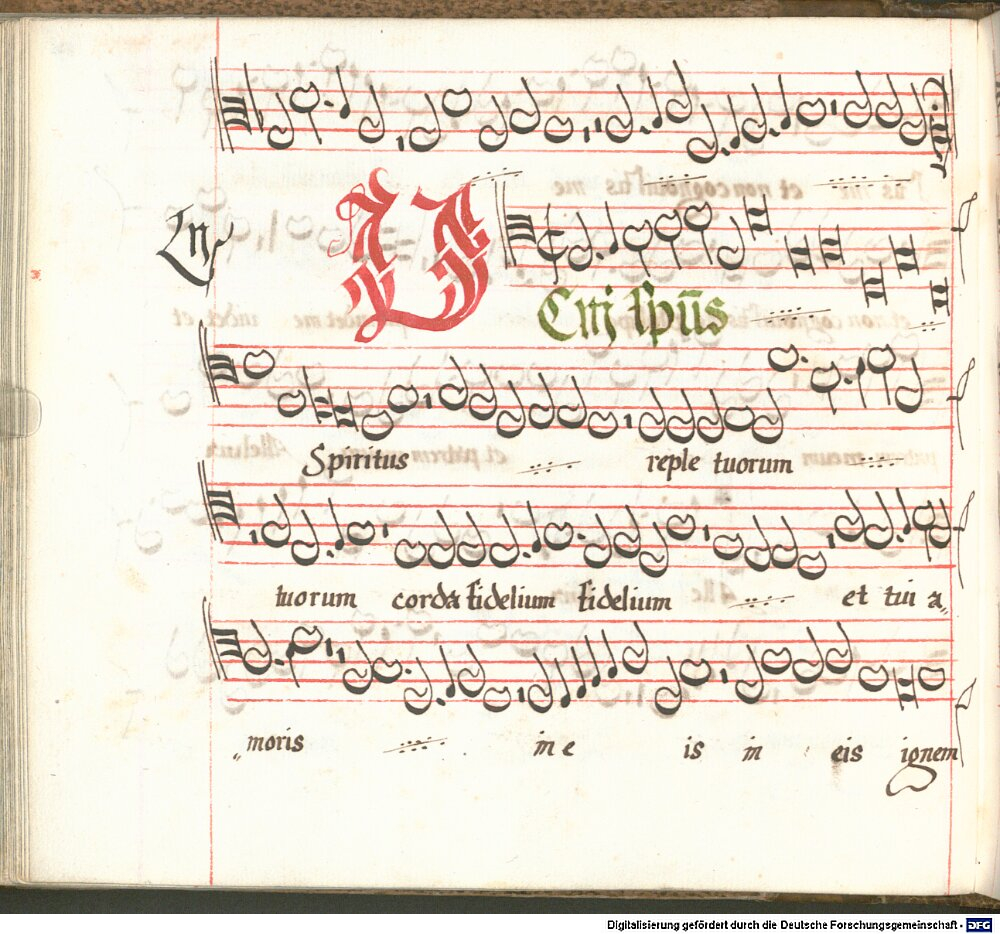 Spiritus reple tuorum
tuorum corda fidelium fidelium et tui a„
„moris in e is in eis ignem
Digitalisierung gefördert durch die Deutsche Forschungsgemeinschaft - DFG